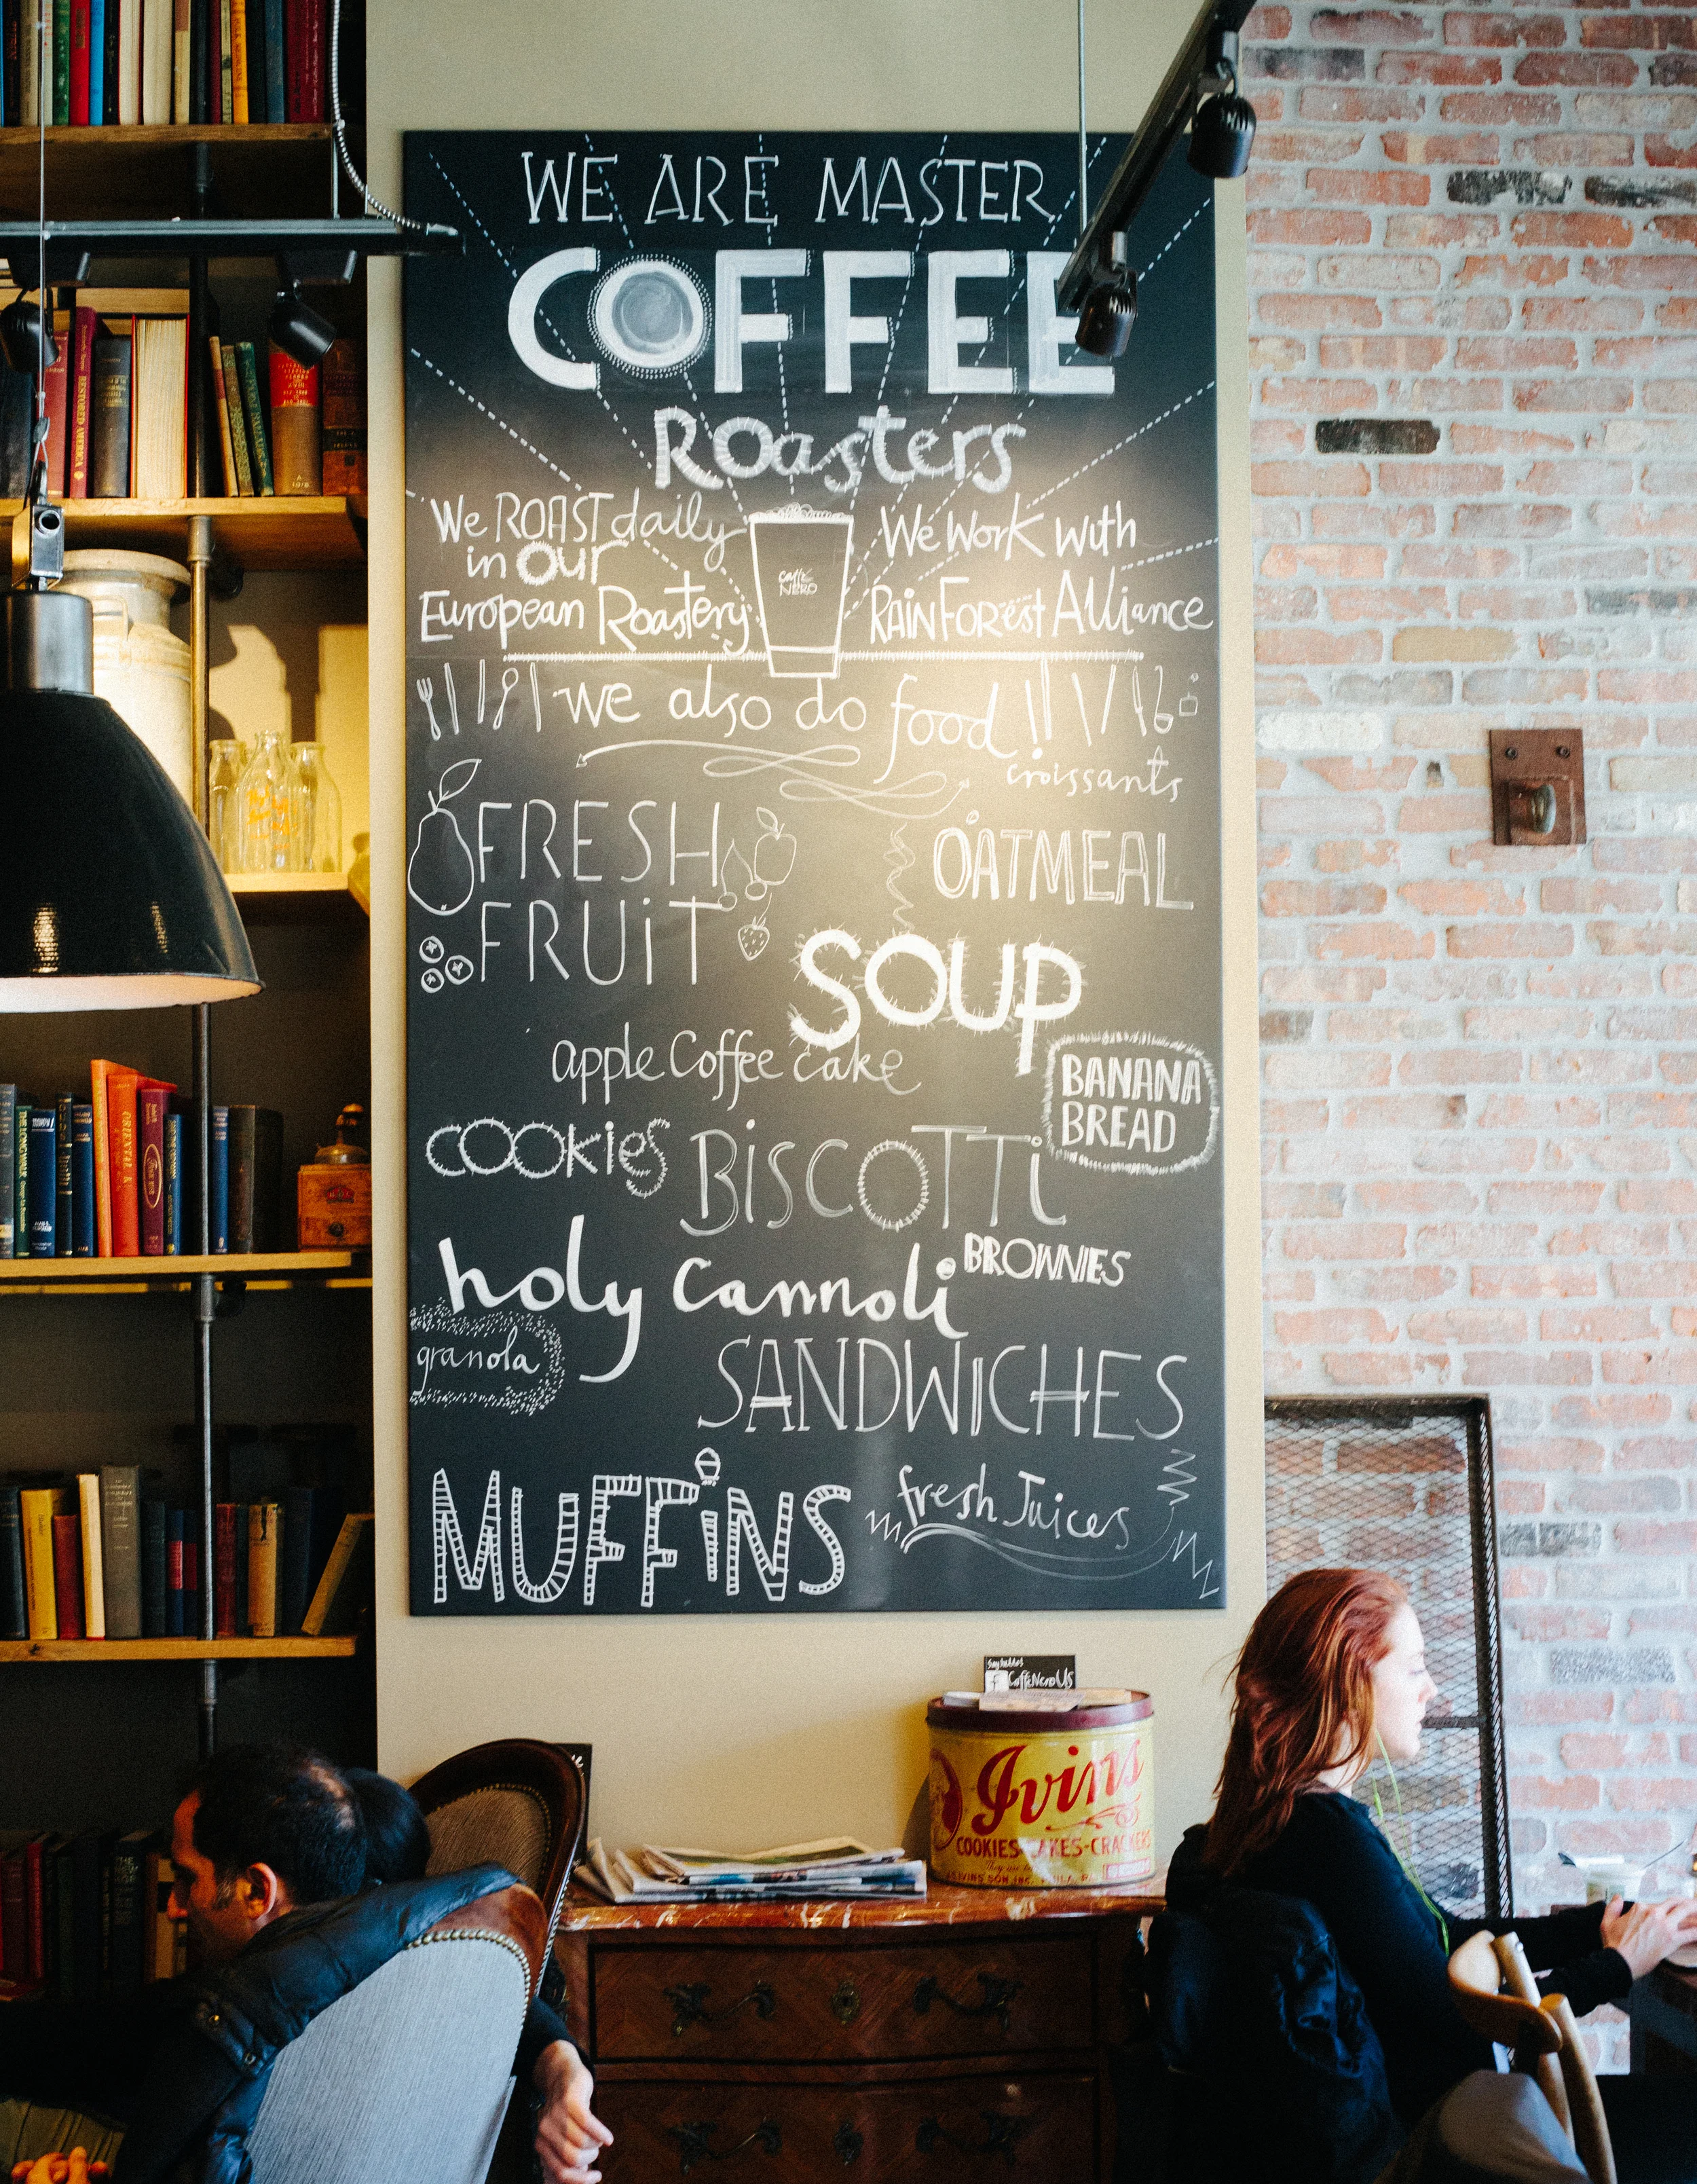 WE ARE MASTER
COFFEE
Roasters
We ROAST daily
in our
European Roastery
caffè
NERO
We work with
RAINFORest Alliance
we also do food!!
croissants
FRESH
FRUiT
OATMEAL
SOUP
apple Coffee cake
BANANA
BREAD
COOKiES
BiSCOTTi
BROWNIES
holy Cannoli
granola
SANDWICHES
MUFFiNS
fresh Juices
f CaffeNeroUS
Ivins
COOKIES-CAKES-CRACKERS